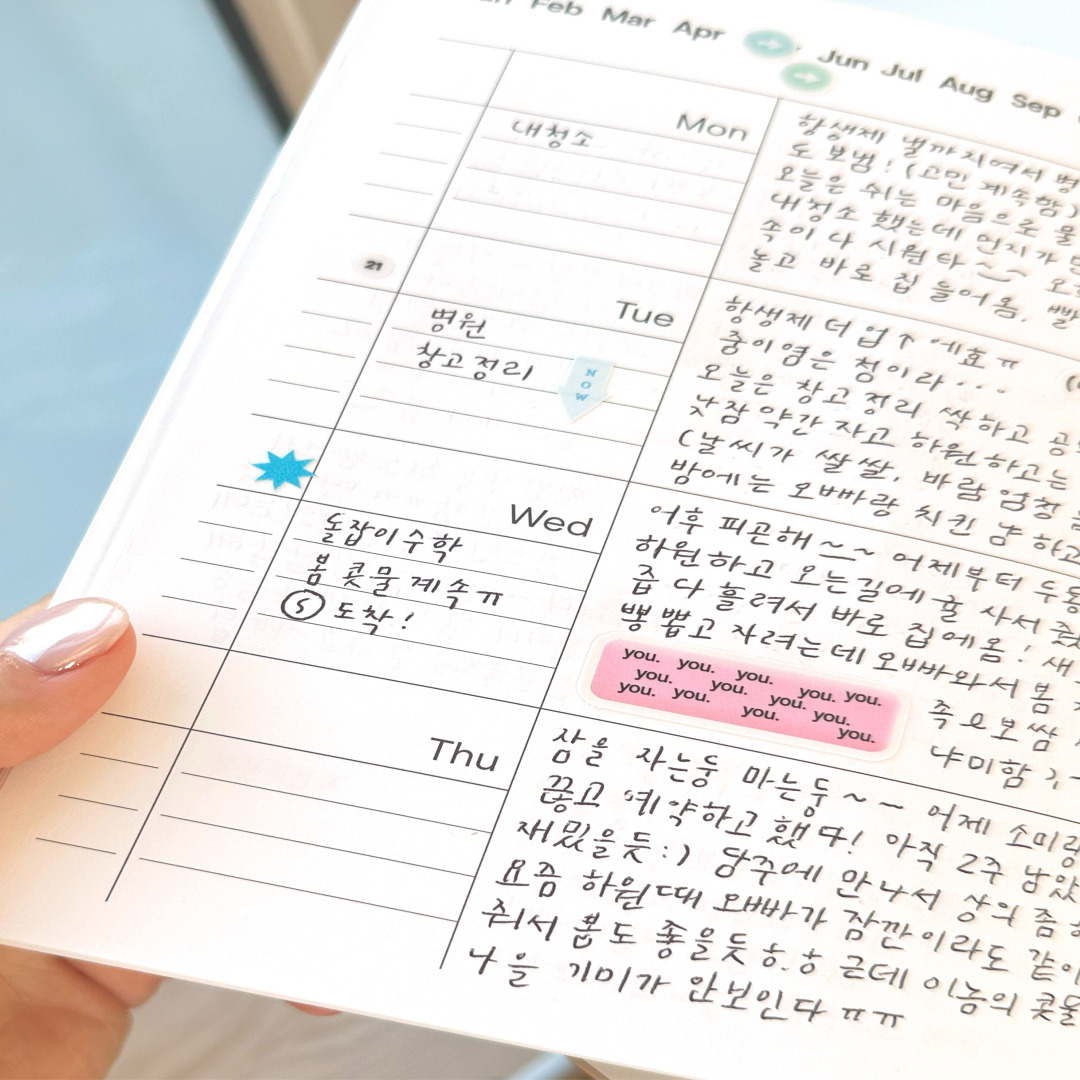 Feb Mar Apr Jun Jul Aug Sep
Mon
대청소
항생제 낼까지여서 병
도 보범! (고민 계속함)
오늘은 쉬는 마음으로 물
대청소 했는데 먼지가
속이 다 시원타~~
놓고 바로 집 들어옴.
21
Tue
병원
창고정리
NOW
항생제 더 업↑ 에효ㅠ
중이염은 첨이라...
오늘은 창고정리 싹하고
낮잠 약간 자고 하원하고는
(날씨가 쌀쌀, 바람 엄청
밤에는 오빠랑 치킨 냠 하고
Wed
돌잡이수학
봄 콧물계속ㅠ
5 도착!
어후 피곤해~~ 어제부터 두통
하원하고 오는길에 귤 사서
즙 다 흘려서 바로 집에옴! 새
뽕뽑고 자려는데 오빠와서 봄
you. you. you. you. you.
you. you. you. you.
you. you. you. you.
족으보쌈
냐미함
Thu
잠을 자는둥 마는둥~~ 어제 소미랑
끊고 예약하고 했다! 아직 2주 남았
재밌을듯:) 담주에 만나서 상의 좀
요즘 하원때 오빠가 잠깐이라도 같이
줘서 봄도 좋을듯ㅎ.ㅎ 근데 이놈의 콧물
나을 기미가 안보인다ㅠㅠ